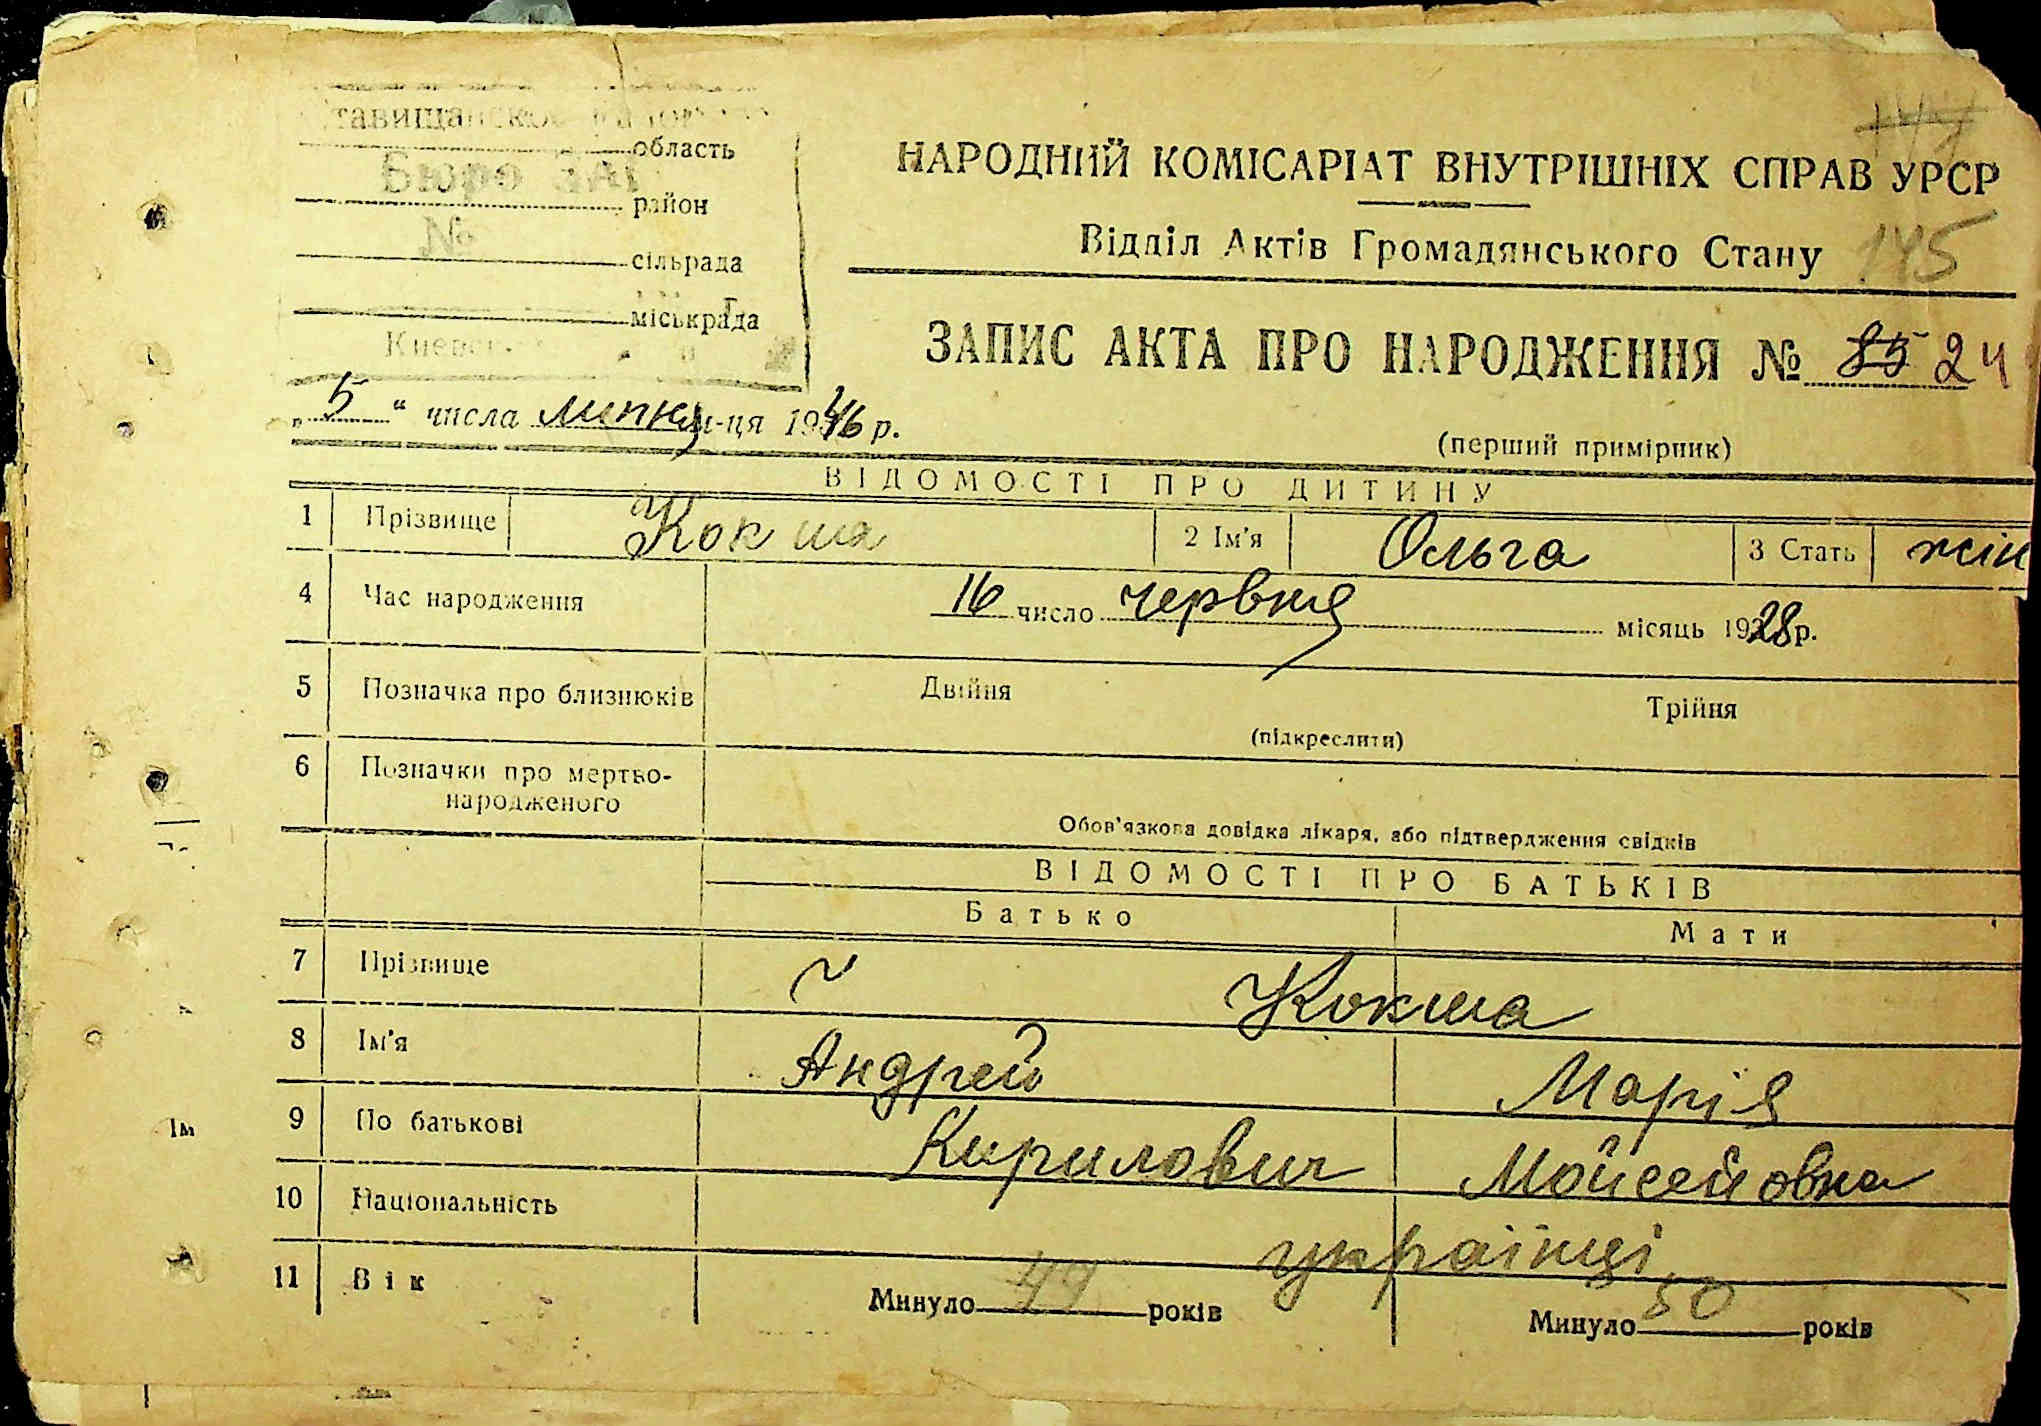 область
Бюро ЗАГ
район
№
сільрада
міськрада
НАРОДНИЙ КОМІСАРІАТ ВНУТРІШНІХ СПРАВ УРСР
Відділ Актів Громадянського Стану 145
ЗАПИС АКТА ПРО НАРОДЖЕННЯ № 85 24
„ 5 " числа липня м-ця 1946 р.
(перший примірник)
ВІДОМОСТІ ПРО ДИТИНУ
1 Прізвище Кокша 2 Ім'я Ольга 3 Стать жін
4 Час народження 16 число червня місяць 1928 р.
5 Позначка про близнюків Двійня Трійня
(підкреслити)
6 Позначки про мертво-
народженого
Обов'язкова довідка лікаря, або підтвердження свідків
ВІДОМОСТІ ПРО БАТЬКІВ
Батько Мати
7 Прізвище Кокша
8 Ім'я Андрей Марія
9 По батькові Кирилович Мойсейовна
10 Національність українці
11 Вік Минуло 49 років Минуло 50 років